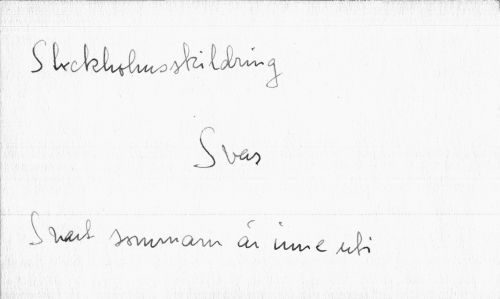 Stockholmsskildring
Svar
Snart sommarn är inne uti